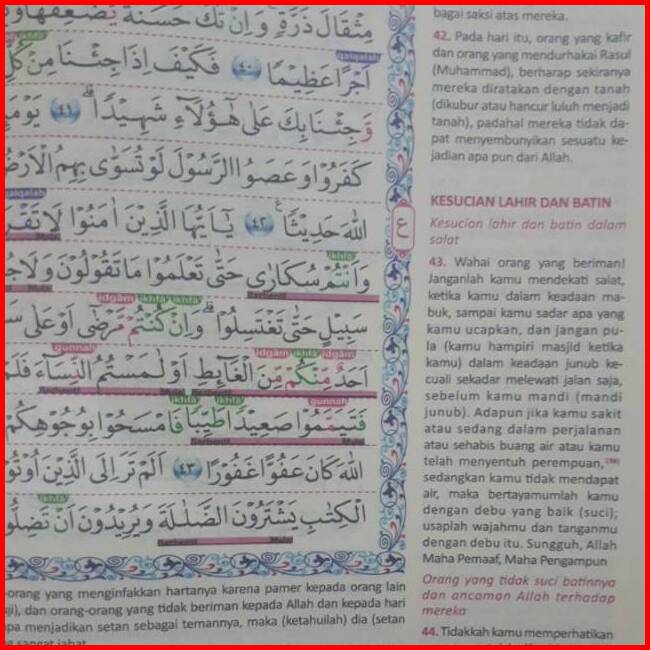 مِثْقَالَ ذَرَّةٍ ۚ وَاِنْ تَكُ حَسَنَةً يُّضٰعِفْهَا
اَجْرًا عَظِيْمًا ٤٠ فَكَيْفَ اِذَا جِئْنَا مِنْ كُلِّ
وَّجِئْنَا بِكَ عَلٰى هٰٓؤُلَاۤءِ شَهِيْدًاۗ ٤١
كَفَرُوْا وَعَصَوُا الرَّسُوْلَ لَوْ تُسَوّٰى بِهِمُ الْاَرْضُ
اللّٰهَ حَدِيْثًا ٤٢ يٰٓاَيُّهَا الَّذِيْنَ اٰمَنُوْا لَا
وَاَنْتُمْ سُكَارٰى حَتّٰى تَعْلَمُوْا مَا تَقُوْلُوْنَ وَلَا
سَبِيْلٍ حَتّٰى تَغْتَسِلُوْاۗ وَاِنْ كُنْتُمْ مَّرْضٰٓى اَوْ عَلٰى
اَحَدٌ مِّنْكُمْ مِّنَ الْغَاۤىِٕطِ اَوْ لٰمَسْتُمُ النِّسَاۤءَ فَلَمْ
فَتَيَمَّمُوْا صَعِيْدًا طَيِّبًا فَامْسَحُوْا بِوُجُوْهِكُمْ
اللّٰهَ كَانَ عَفُوًّا غَفُوْرًا ٤٣ اَلَمْ تَرَ اِلَى الَّذِيْنَ
الْكِتٰبِ يَشْتَرُوْنَ الضَّلٰلَةَ وَيُرِيْدُوْنَ اَنْ تَضِلُّوا
ع
-orang yang menginfakkan hartanya karena pamer kepada orang lain
dan orang-orang yang tidak beriman kepada Allah dan kepada hari
menjadikan setan sebagai temannya, maka (ketahuilah) dia (setan
sangat jahat.
bagai saksi atas mereka.
42. Pada hari itu, orang yang kafir
dan orang yang mendurhakai Rasul
(Muhammad), berharap sekiranya
mereka diratakan dengan tanah
(dikubur atau hancur luluh menjadi
tanah), padahal mereka tidak da-
pat menyembunyikan sesuatu ke-
jadian apa pun dari Allah.
KESUCIAN LAHIR DAN BATIN
Kesucian lahir dan batin dalam
salat
43. Wahai orang yang beriman!
Janganlah kamu mendekati salat,
ketika kamu dalam keadaan ma-
buk, sampai kamu sadar apa yang
kamu ucapkan, dan jangan pu-
la (kamu hampiri masjid ketika
kamu) dalam keadaan junub ke-
cuali sekadar melewati jalan saja,
sebelum kamu mandi (mandi
junub). Adapun jika kamu sakit
atau sedang dalam perjalanan
atau sehabis buang air atau kamu
telah menyentuh perempuan,
sedangkan kamu tidak mendapat
air, maka bertayamumlah kamu
dengan debu yang baik (suci);
usaplah wajahmu dan tanganmu
dengan debu itu. Sungguh, Allah
Maha Pemaaf, Maha Pengampun
Orang yang tidak suci batinnya
dan ancaman Allah terhadap
mereka
44. Tidakkah kamu memperhatikan